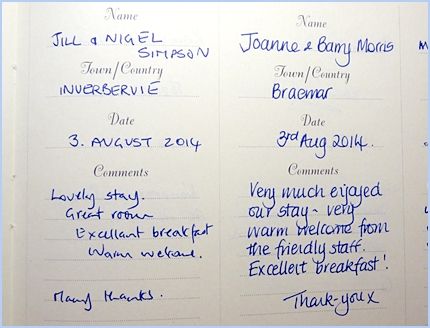 Name
JILL & NIGEL
SIMPSON
Town/Country
INVERBERVIE
Date
3. AUGUST 2014
Comments
Lovely stay.
Great room
Excellant breakfast
Warm welcome.
Many thanks.
Name
Joanne & Barry Morris
Town/Country
Braemar
Date
3rd Aug 2014.
Comments
Very much enjoyed
our stay - very
warm welcome from
the friendly staff.
Excellent breakfast!
Thank-you x